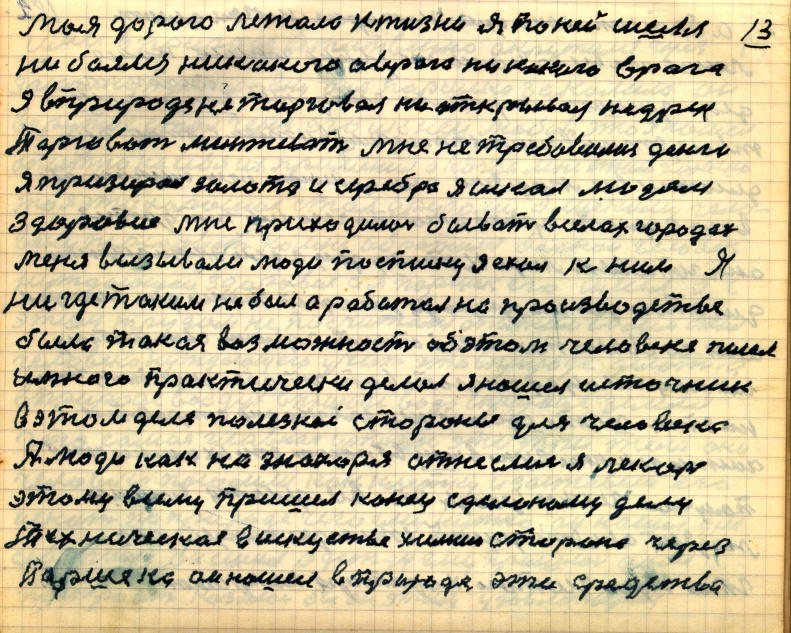 моя дорого лежала к жизни я по ней шел 13
ни боялся никакого никакого врага
я в природе не торговал ни открывал недрах
Тарговат мне не требовалис денги
я призирал золота и серебро я искал людям
здаровие мне приходилос быват в селах городах
меня вызывали люди по списку я ехал к ним Я
ни где таким не был а работал на производстве
была такая возможност об этом человеке писал
многа практически делал я нашел источник
в этом деле полезной стороны для человека
А люди как на знахоря отнеслис я лекар
этому всему пришел конец сделоному делу
Техническая в искустве химии старона через
Паршека он нашел в природе эти средства